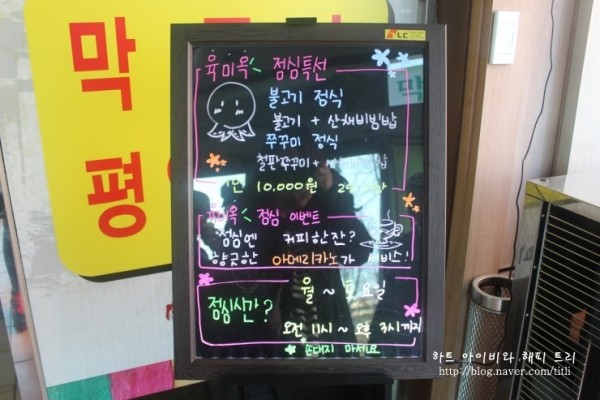 막
평
LC
육미옥 점심특선
불고기 정식
불고기 + 산채비빔밥
쭈꾸미 정식
철판쭈꾸미 +
10,000원
육미옥 점심 이벤트
점심엔 커피한잔?
향긋한 아메리카노가 서비스!
월 ~ 토요일
점심시간?
오전 11시 ~ 오후 3시까지
손대지 마세요
하트 아이비와 해피 트리
http://blog.naver.com/titli